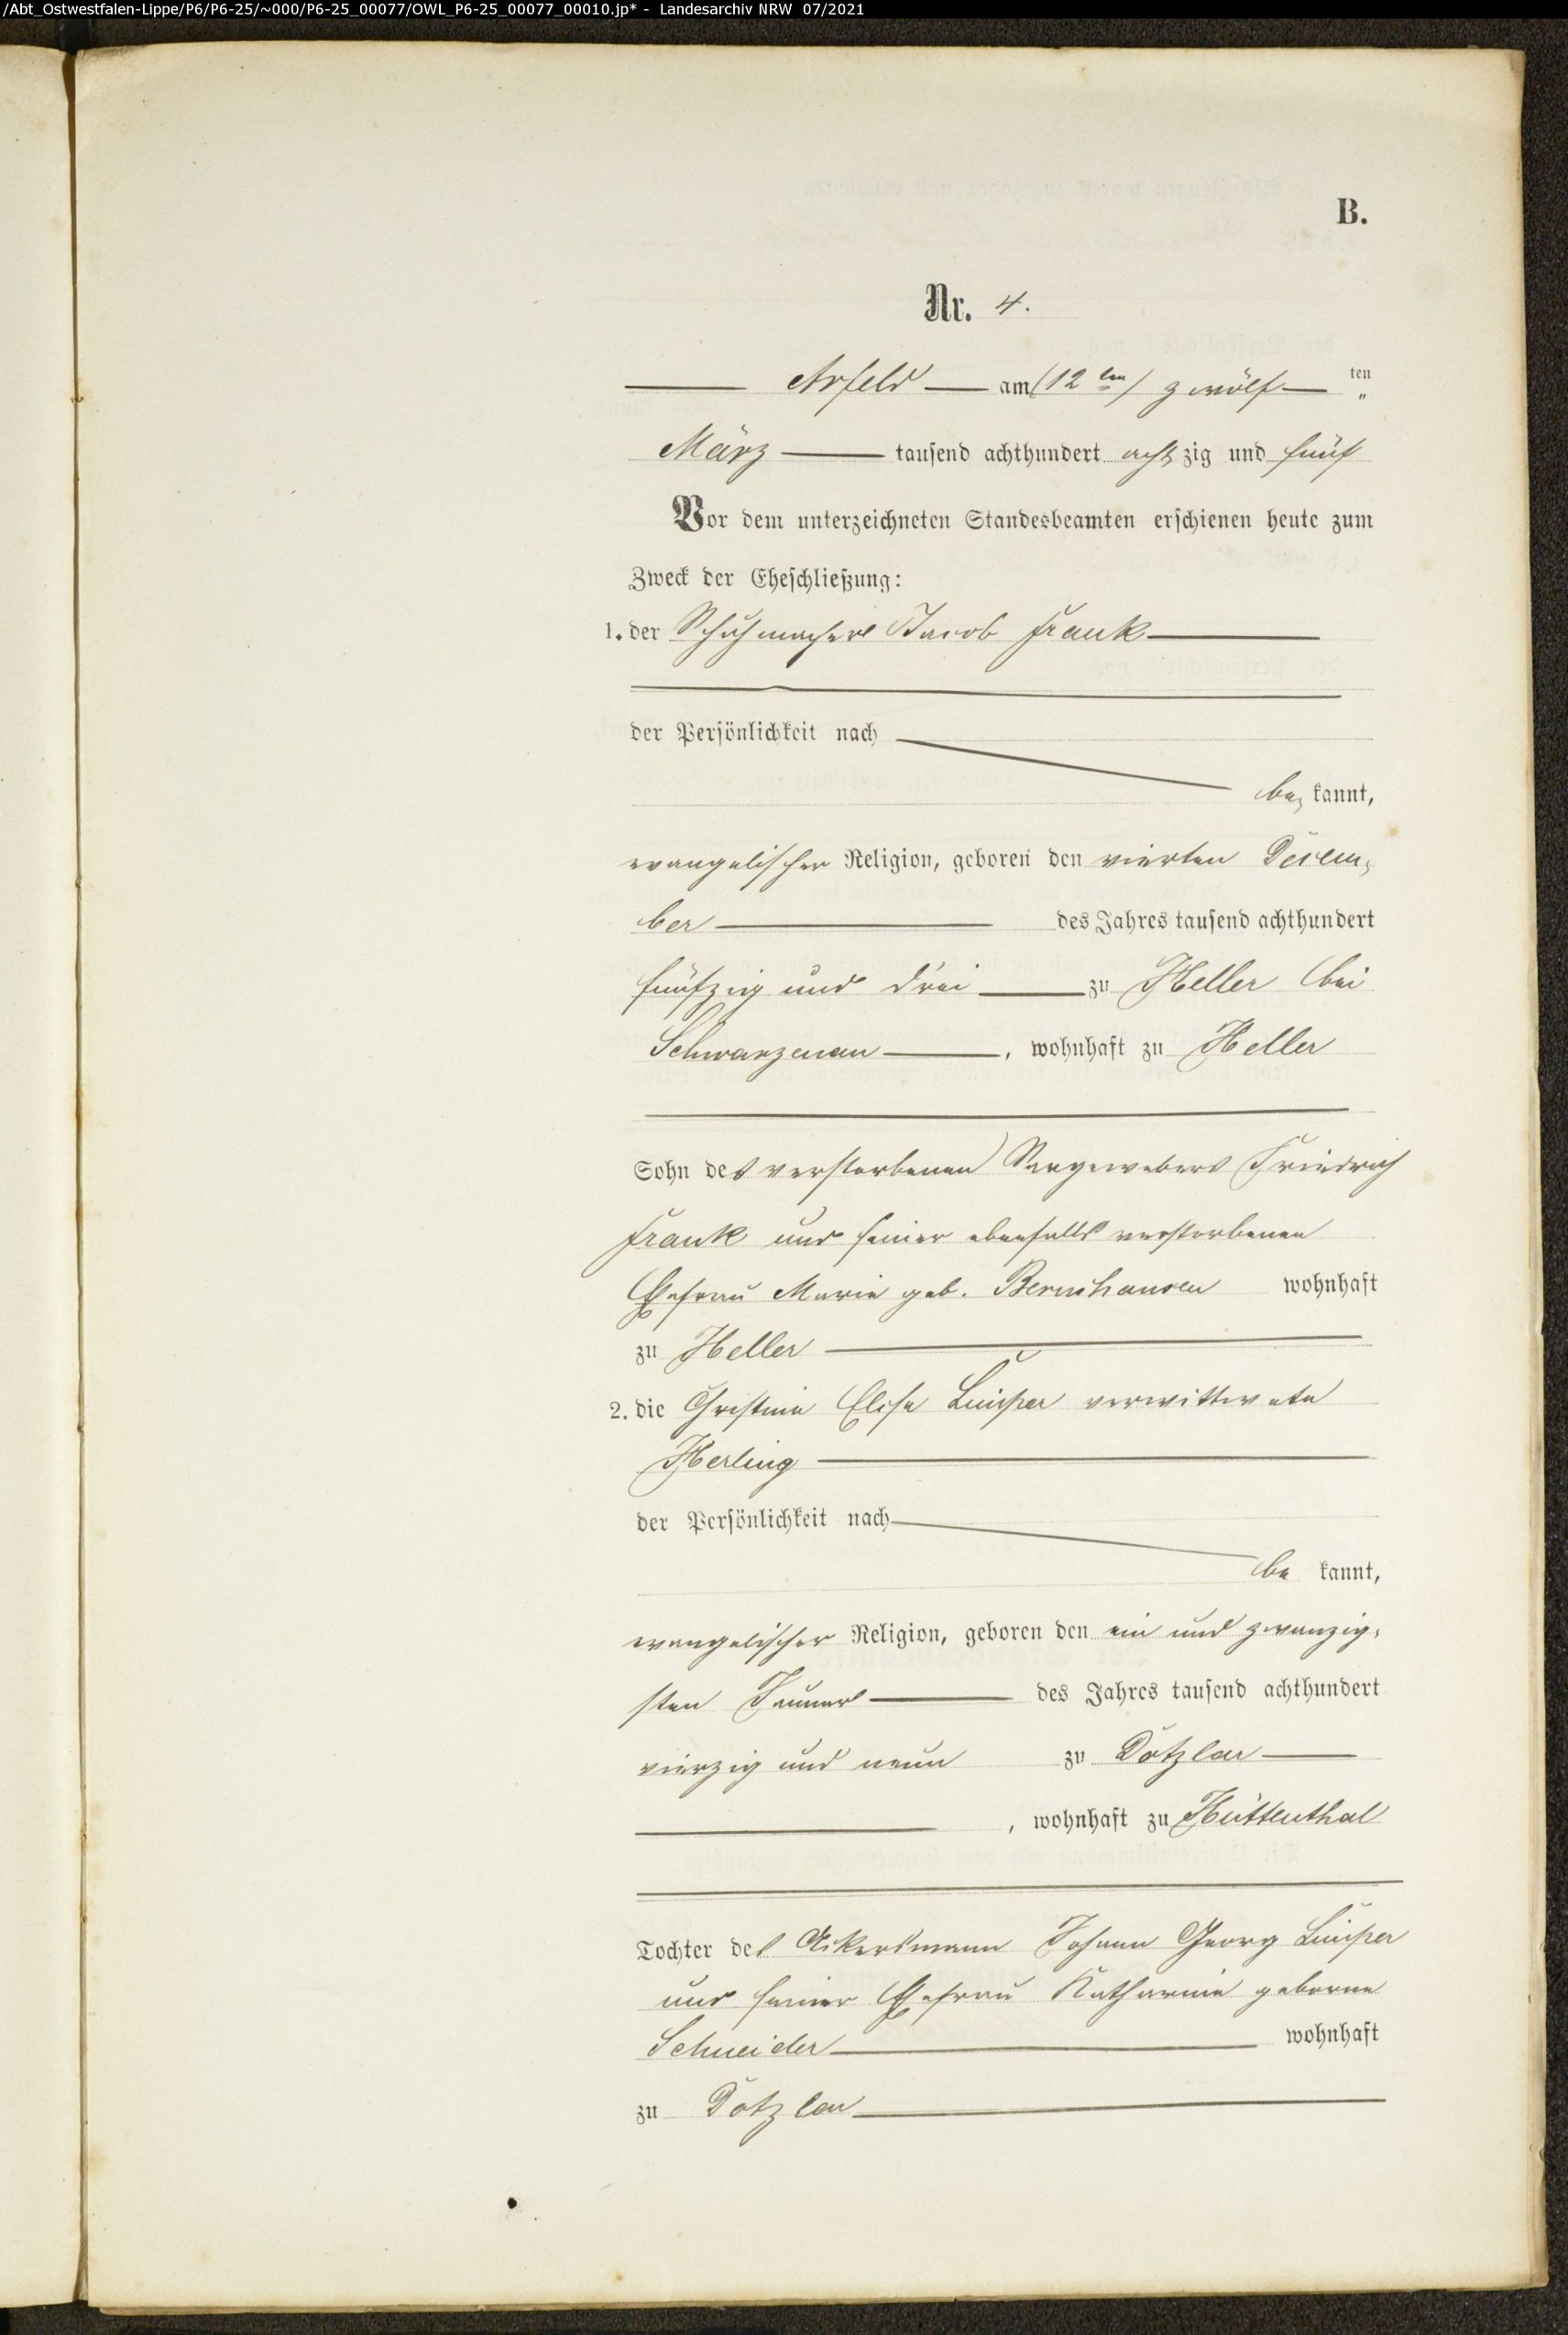 /Abt_Ostwestfalen-Lippe/P6/P6-25/~000/P6-25_00077/OWL_P6-25_00077_00010.jp* - Landesarchiv NRW 07/2021
B.
Nr. 4.
Arfeld am (12ten) zwölf ten
März tausend achthundert achtzig und fünf
Vor dem unterzeichneten Standesbeamten erschienen heute zum
Zweck der Eheschließung:
1. der Schuhmacher Jacob Frank
der Persönlichkeit nach
be, kannt,
evangelischer Religion, geboren den vierten Decem,
ber des Jahres tausend achthundert
fünfzig und drei zu Heller bei
Schwarzenau, wohnhaft zu Heller
Sohn des verstorbenen Friedrich
Frank und seiner ebenfalls verstorbenen
Ehefrau Marie geb. Bernshausen wohnhaft
zu Heller
2. die Christine Elise verwittwete
Herling
der Persönlichkeit nach
be kannt,
evangelischer Religion, geboren den ein und zwanzig,
sten Januar des Jahres tausend achthundert
vierzig und neun zu Dotzlar
, wohnhaft zu Hüttenthal
Tochter des Ackersmann Johann Georg
und seiner Ehefrau Katharine geborne
Schneider wohnhaft
zu Dotzlar